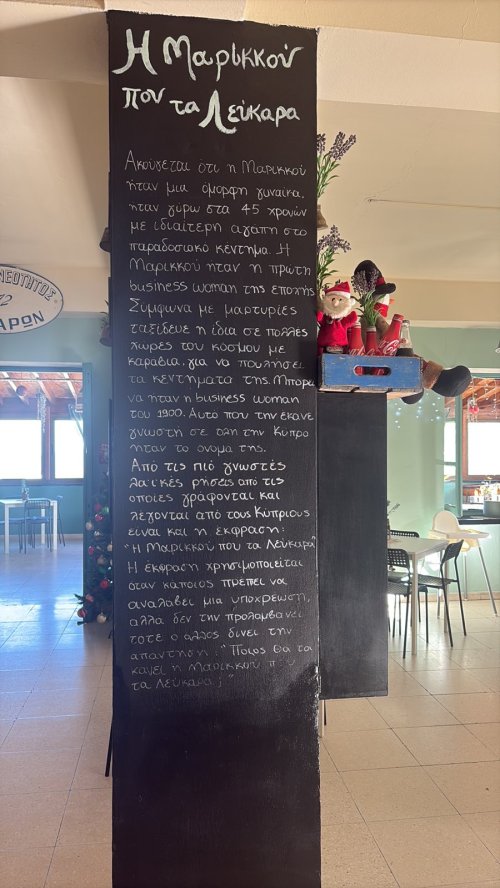 Η Μαρικκού
που τα Λεύκαρα
Ακούγεται ότι η Μαρικκού
ήταν μια όμορφη γυναίκα,
ήταν γύρω στα 45 χρονών
με ιδιαίτερη αγάπη στο
παραδοσιακό κέντημα. Η
Μαρικκού ήταν η πρώτη
business woman της εποχής
Σύμφωνα με μαρτυρίες
ταξίδευε η ίδια σε πολλές
χώρες του κόσμου με
καράβια, για να πουλήσει
τα κεντήματα της. Μπορεί
να ήταν η business woman
του 1900. Αυτό που την έκανε
γνωστή σε όλη την Κύπρο
ήταν το όνομα της.
Από τις πιό γνωστές
λαϊκές ρήσεις από τις
οποίες γράφονται και
λέγονται από τους Κύπριους
είναι και η έκφραση:
"Η Μαρικκού που τα Λεύκαρα"
Η έκφραση χρησιμοποιείται
όταν κάποιος πρέπει να
αναλάβει μια υποχρέωση,
αλλά δεν την προλαμβάνει
τότε ο άλλος δίνει την
απάντηση: "Ποιος θα τα
κάμει η Μαρικκού π
τα Λεύκαρα;"
ΝΕΟΤΗΤΟΣ
ΑΡΩΝ